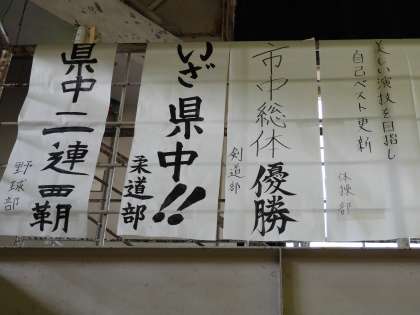 美しい演技を目指し
自己ベスト更新
体操部
市中総体優勝
剣道部
いざ県中!!
柔道部
県中二連覇
野球部